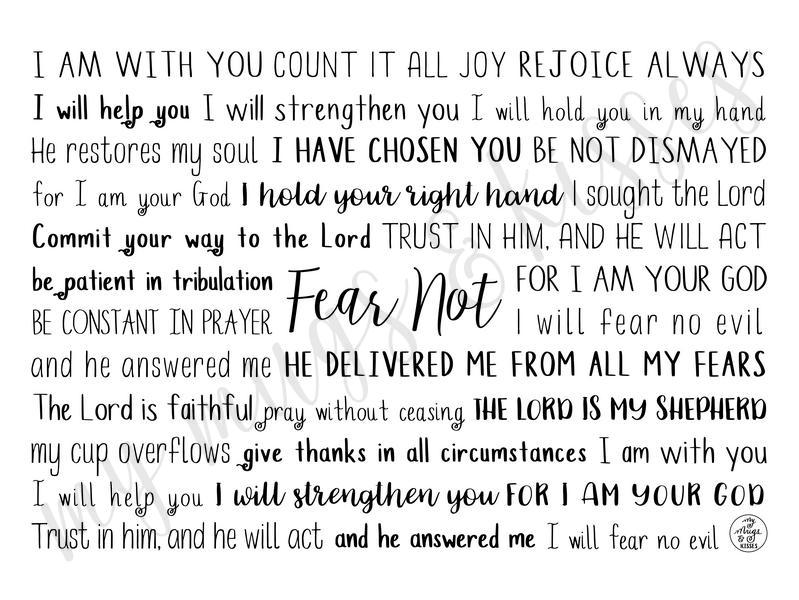 I AM WITH YOU COUNT IT ALL JOY REJOICE ALWAYS
I will help you I will strengthen you I will hold you in my hand
He restores my soul I HAVE CHOSEN YOU BE NOT DISMAYED
for I am your God I hold your right hand I sought the Lord
Commit your way to the Lord TRUST IN HIM, AND HE WILL ACT
be patient in tribulation
BE CONSTANT IN PRAYER
Fear Not
FOR I AM YOUR GOD
I will fear no evil
and he answered me HE DELIVERED ME FROM ALL MY FEARS
The Lord is faithful pray without ceasing THE LORD IS MY SHEPHERD
my cup overflows give thanks in all circumstances I am with you
I will help you I will strengthen you FOR I AM YOUR GOD
Trust in him, and he will act and he answered me I will fear no evil
my
Mugs
&
KISSES
my mugs & kisses